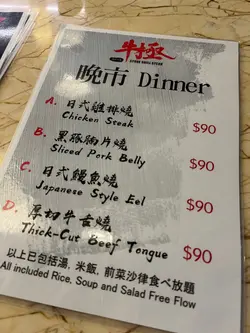 牛極
STONE GRILL STEAK
晚市 Dinner
A. 日式雞排燒
Chicken Steak
$90
B. 黑豚腩片燒
Sliced Pork Belly
$90
C. 日式鰻魚燒
Japanese Style Eel
$90
D. 厚切牛舌燒
Thick-Cut Beef Tongue
$90
以上已包括湯, 米飯, 前菜沙律食べ放題
All included Rice, Soup and Salad Free Flow